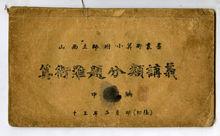 山西立師附小算術叢書
算術難題分類講義
甲 編
十三年五月印(初版)